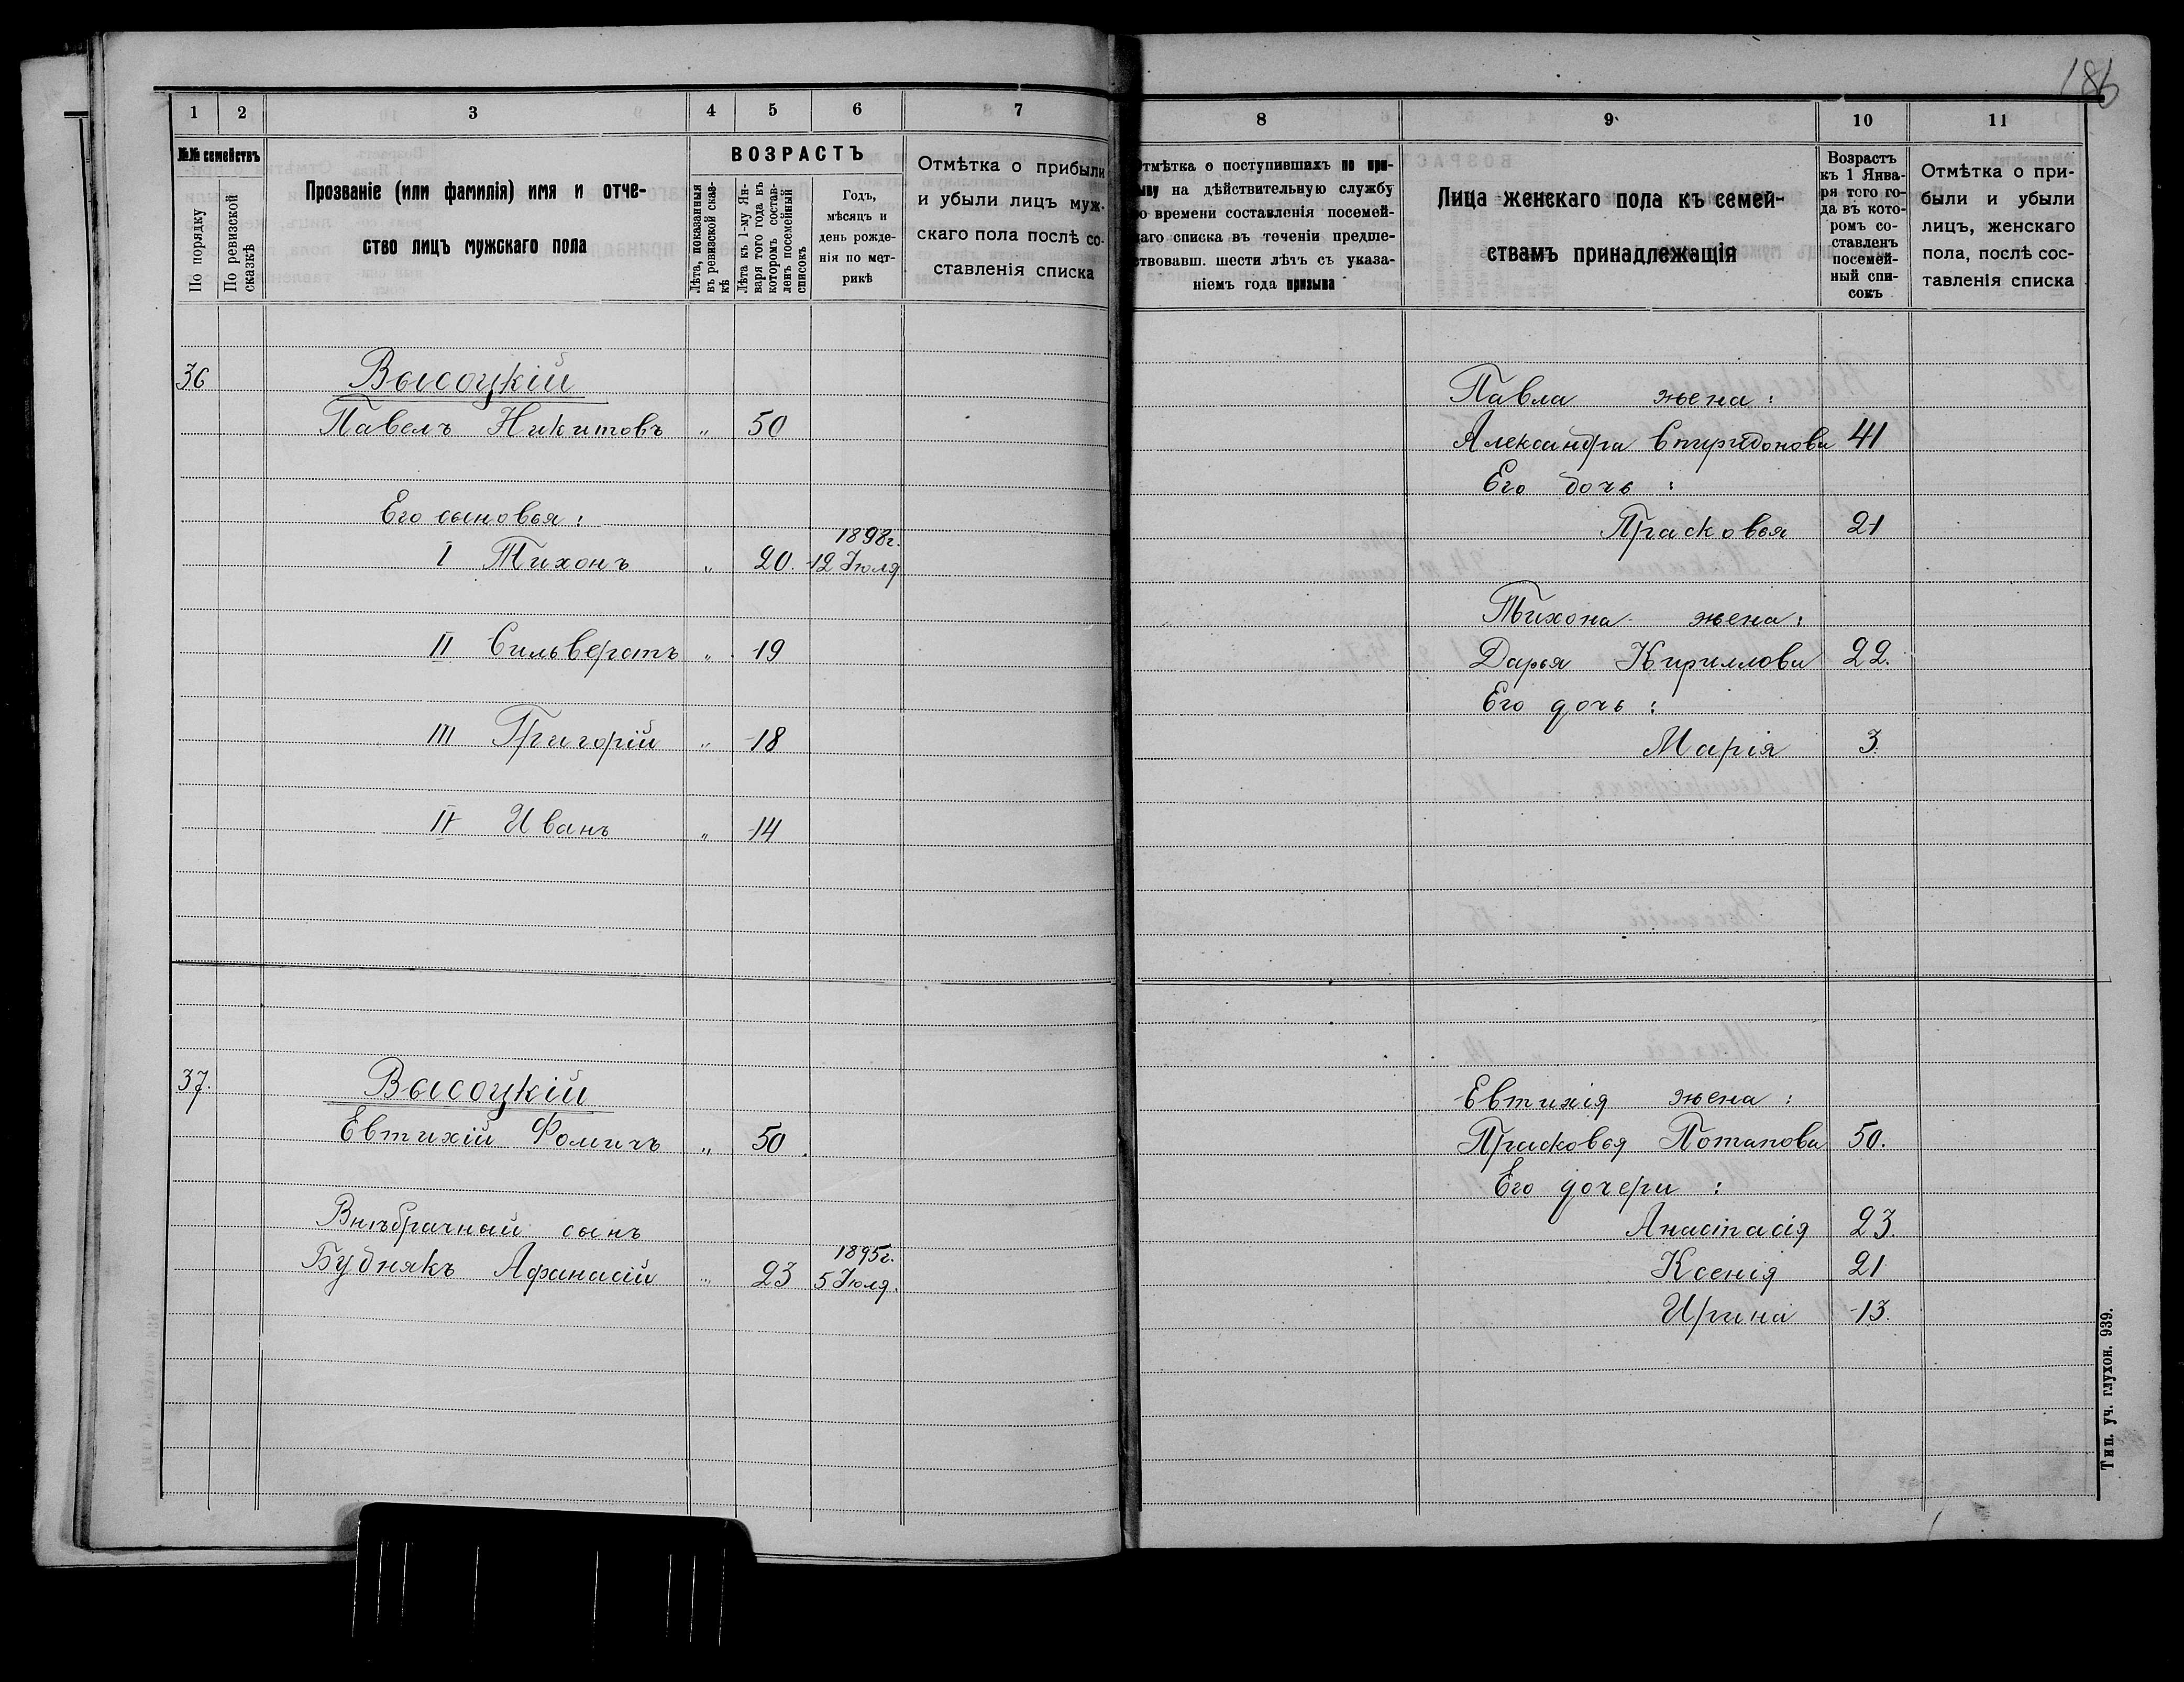 186
1 2 3 4 5 6 7
№№ семействъ
По порядку
По ревизской сказкѣ
Прозваніе (или фамилія) имя и отче-
ство лицъ мужскаго пола
ВОЗРАСТЪ
Лѣта, показанныя
въ ревизской сказ-
кѣ
Лѣта къ 1-му Ян-
варя того года въ
которомъ состав-
ленъ посемейный
списокъ
Годъ,
мѣсяцъ и
день рожде-
нія по мет-
рикѣ
Отмѣтка о прибыли
и убыли лицъ муж-
скаго пола послѣ со-
ставленія списка
36 Высоцкій
Павелъ Никитовъ „ 50
Его сыновья:
1898г.
I Тихонъ „ 20. 12 Іюля
II Сильверстъ „ 19
III Григорій „ 18
IV Иванъ „ 14
37. Высоцкій
Евтихій Фомичъ „ 50.
Внѣбрачный сынъ
1895г.
Будникъ Афанасій „ 23 5 Іюля.
8 9 10 11
Отмѣтка о поступившихъ по при-
зыву на дѣйствительную службу
во времени составленія посемей-
наго списка въ теченіи предше-
ствовавш. шести лѣтъ съ указа-
ніемъ года призыва
Лица женскаго пола къ семей-
ствамъ принадлежащія
Возрастъ
къ 1 Янва-
ря того го-
да въ кото-
ромъ со-
ставленъ
посемей-
ный спи-
сокъ
Отмѣтка о при-
были и убыли
лицъ, женскаго
пола, послѣ сос-
тавленія списка
Павла жена:
Александра Спиридонова 41
Его дочь:
Прасковья 21
Тихона жена:
Дарья Кириллова 22.
Его дочь:
Марія 3.
Евтихія жена:
Прасковья Потапова 50.
Его дочери:
Анастасія 23.
Ксенія 21
Ирина 13.
Тип. уч. глухон. 939.